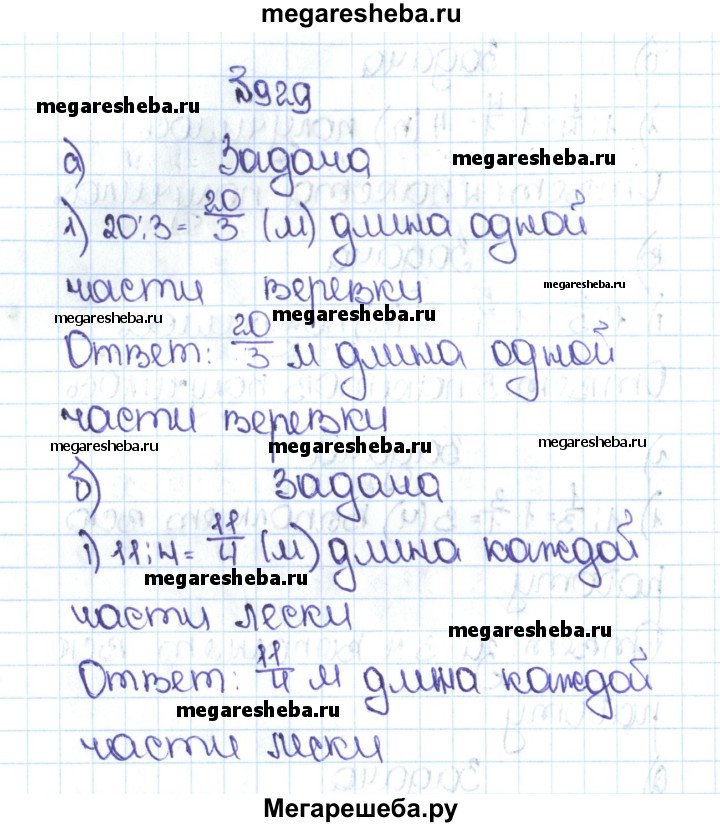 megaresheba.ru
№929
megaresheba.ru
а) Задача
megaresheba.ru
1) 20:3= 20/3 (м) длина одной
megaresheba.ru
части веревки
megaresheba.ru
megaresheba.ru
Ответ: 20/3 м длина одной
части веревки
megaresheba.ru
megaresheba.ru
megaresheba.ru
б) Задача
1) 11:4= 11/4 (м) длина каждой
megaresheba.ru
части лески
megaresheba.ru
Ответ: 11/4 м длина каждой
megaresheba.ru
части лески
Мегарешеба.ру